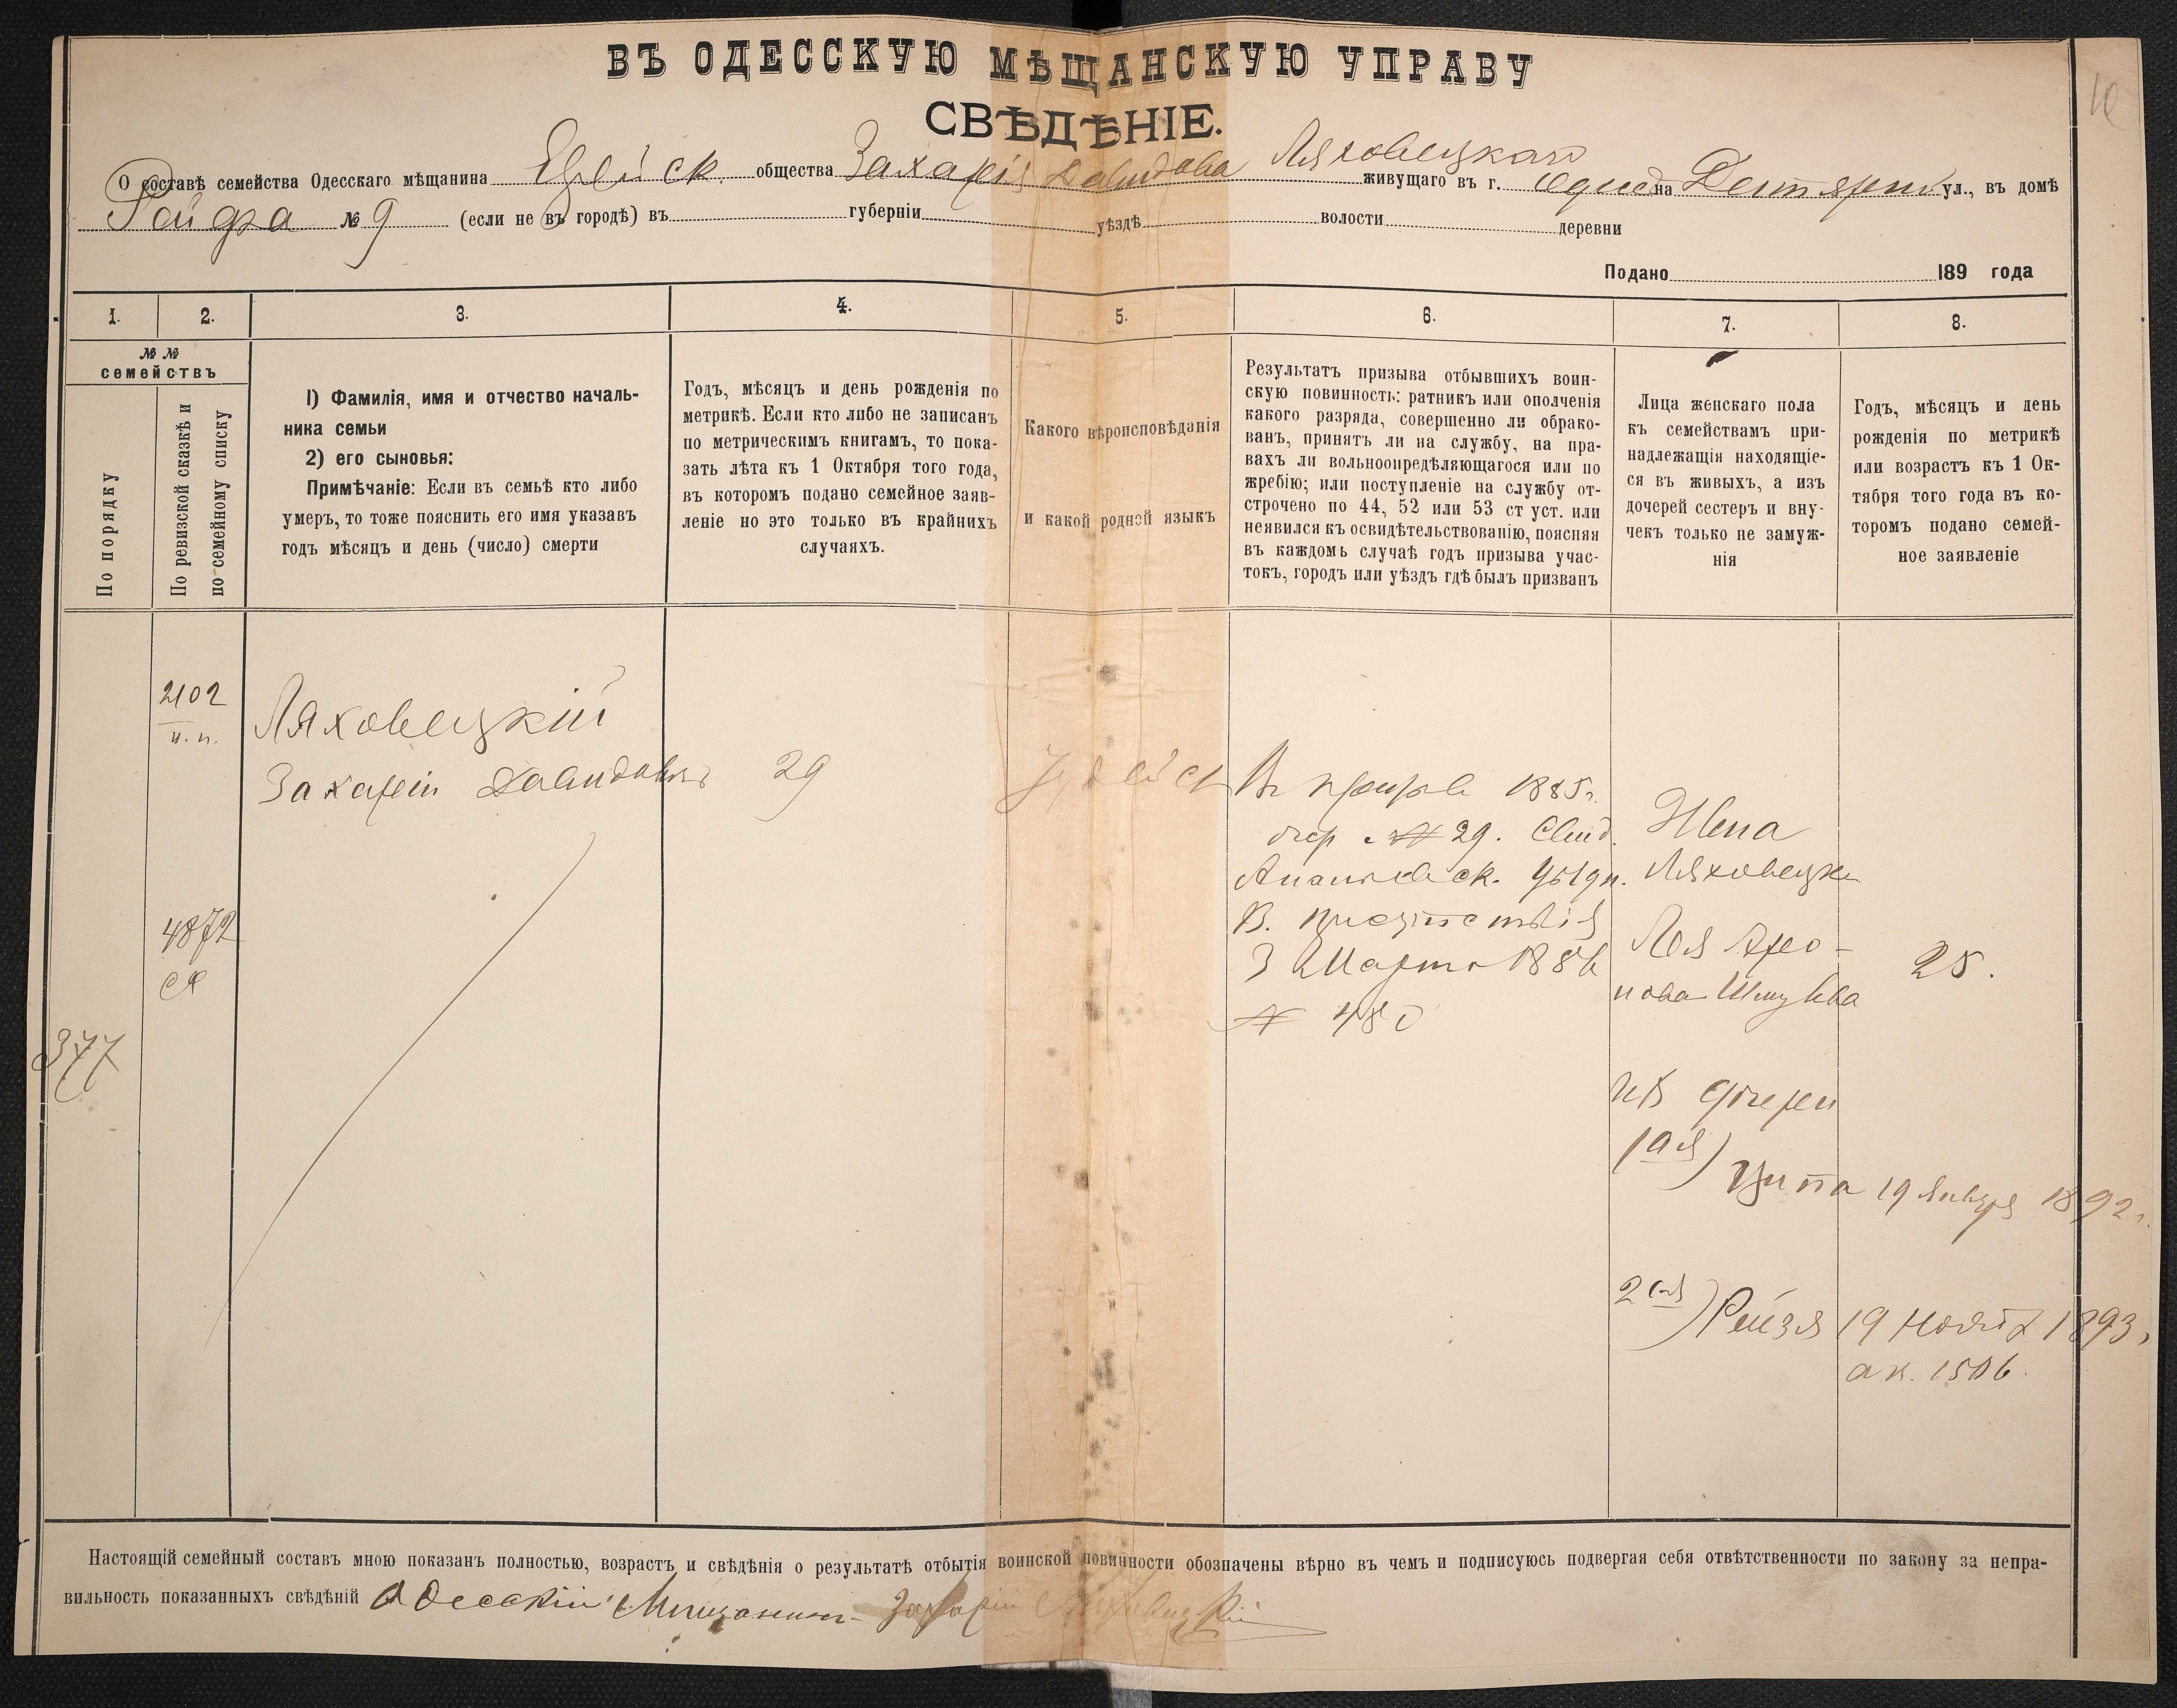 ВЪ ОДЕССКУЮ МѢЩАНСКУЮ УПРАВУ
СВѢДѢНІЕ.
О составѣ семейства Одесскаго мѣщанина Еврейск. общества Захарія Давидова Ляховецкаго живущаго въ г. Одессѣ на Дегтярной ул., въ домѣ
№ 9 (если не въ городѣ) въ губерніи уѣздѣ волости деревни
Подано 189 года
1. 2. 3. 4. 5. 6. 7. 8.
№ №
семействъ
По порядку
По ревизской сказкѣ и
по семейному списку
1) Фамилія, имя и отчество началь-
ника семьи
2) его сыновья:
Примѣчаніе: Если въ семьѣ кто либо
умеръ, то тоже пояснить его имя указавъ
годъ мѣсяцъ и день (число) смерти
Годъ, мѣсяцъ и день рожденія по
метрикѣ. Если кто либо не записанъ
по метрическимъ книгамъ, то пока-
зать лѣта къ 1 Октября того года,
въ которомъ подано семейное заяв-
леніе но это только въ крайнихъ
случаяхъ.
Какого вѣроисповѣданія
и какой родной языкъ
Результатъ призыва отбывшихъ воин-
скую повинность: ратникъ или ополченія
какого разряда, совершенно ли обрако-
ванъ, принятъ ли на службу, на пра-
вахъ ли вольноопредѣляющагося или по
жребію; или поступленіе на службу от-
строчено по 44, 52 или 53 ст уст. или
неявился къ освидѣтельствованію, поясняя
въ каждомъ случаѣ годъ призыва учас-
токъ, городъ или уѣздъ гдѣ былъ призванъ
Лица женскаго пола
къ семействамъ при-
надлежащія находящіе-
ся въ живыхъ, а изъ
дочерей сестеръ и вну-
чекъ только не замуж-
нія
Годъ, мѣсяцъ и день
рожденія по метрикѣ
или возрастъ къ 1 Ок-
тября того года въ ко-
торомъ подано семей-
ное заявленіе
2102
Ляховецкій
Захарій Давидовъ
29
Іудейск
Въ призывѣ 1885г.
жер № 29. Свид.
Ананьевск. Уѣздн.
В. Присутствія
3 Марта 1886
№ 480
Жена
Ляховецка
Лея Аро-
нова
25.
4872
377
ихъ дочери
1ая) Ципа 19 Января 1892 г.
2ая) Рейзя 19 Нояб 1893г
ак. 1506.
Настоящій семейный составъ мною показанъ полностью, возрастъ и свѣдѣнія о результатѣ отбытія воинской повинности обозначены вѣрно въ чемъ и подписуюсь подвергая себя отвѣтственности по закону за непра-
вильность показанныхъ свѣдѣній Одесскій Мѣщанинъ Захарій Ляховецкій